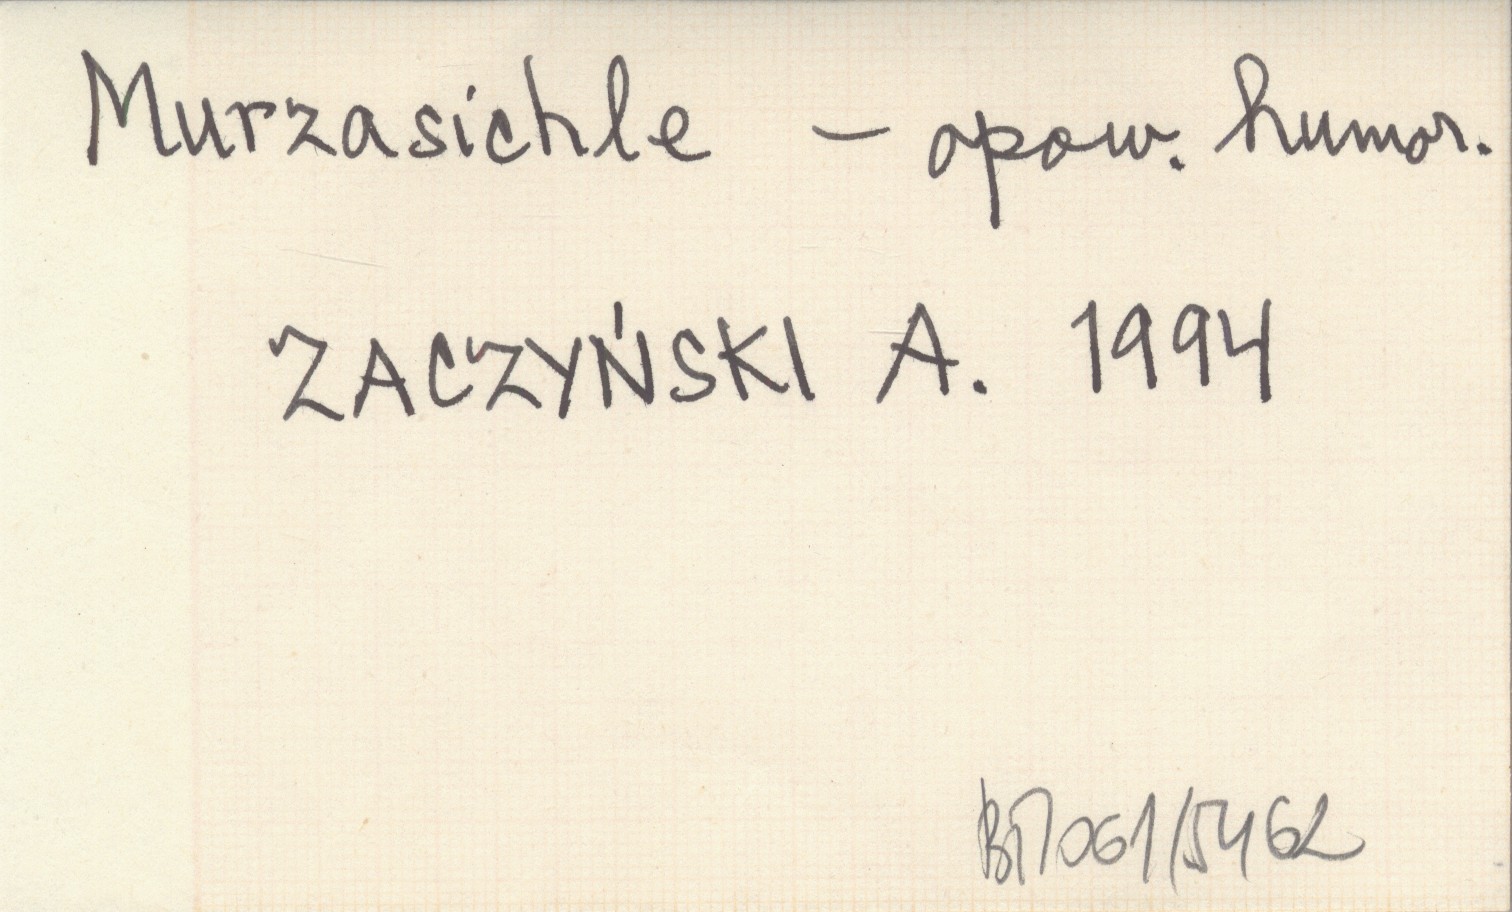 Murzasichle – opow. humor.
ZACZYŃSKI A. 1994
BT/061/5462